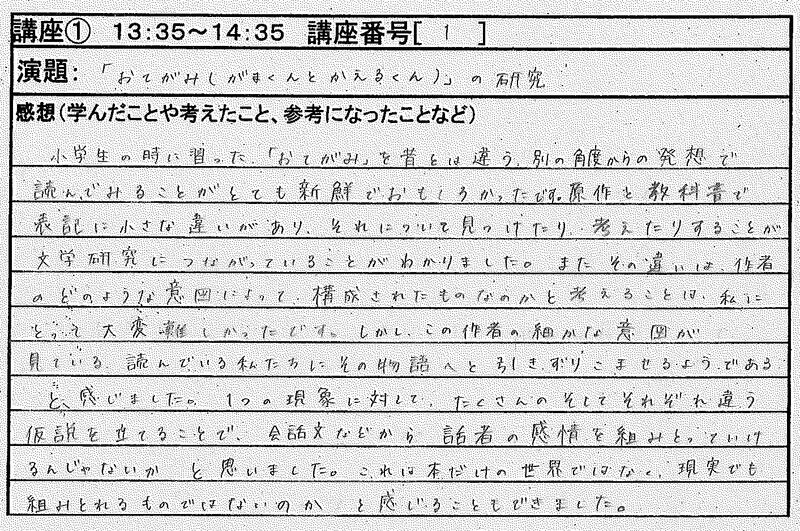 講座① 13:35～14:35 講座番号[ 1 ]
演題:「おてがみ(がまくんとかえるくん)」の研究
感想(学んだことや考えたこと、参考になったことなど)
小学生の時に習った、「おてがみ」を昔とは違う、別の角度からの発想で
読んでみることがとても新鮮でおもしろかったです。原作と教科書で
表記に小さな違いがあり、それについて見つけたり、考えたりすることが
文学研究につながっていることがわかりました。また その違いは、作者
のどのような意図によって、構成されたものなのかと考えることは、私に
とって大変難しかったです。しかし、この作者の細かな意図が
見ている、読んでいる私たちにその物語へと引きずりこませるようである
と、感じました。1つの現象に対して、たくさんのそしてそれぞれ違う
仮説を立てることで、会話文などから 話者の感情を組みとっていけ
るんじゃないか と思いました。これは本だけの世界ではなく、現実でも
組みとれるものではないのか と感じることもできました。